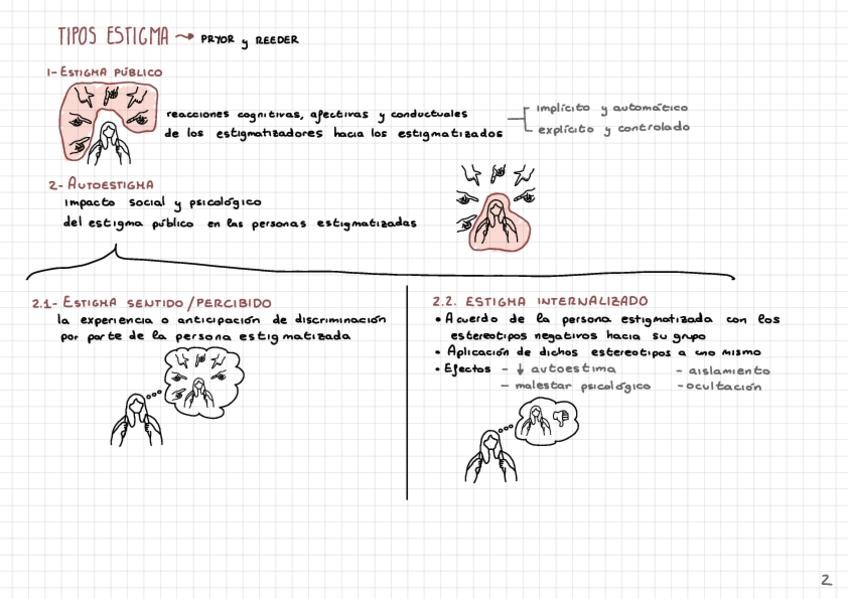 TIPOS ESTIGMA → PRYOR y REEDER
1- ESTIGMA PÚBLICO
reacciones cognitivas, afectivas y conductuales
de los estigmatizadores hacia los estigmatizados
implícito y automático
explícito y controlado
2- AUTOESTIGMA
impacto social y psicológico
del estigma público en las personas estigmatizadas
2.1- ESTIGMA SENTIDO/PERCIBIDO
la experiencia o anticipación de discriminación
por parte de la persona estigmatizada
2.2. ESTIGMA INTERNALIZADO
• Acuerdo de la persona estigmatizada con los
estereotipos negativos hacia su grupo
• Aplicación de dichos estereotipos a uno mismo
• Efectos - ↓ autoestima - aislamiento
- malestar psicológico - ocultación
2